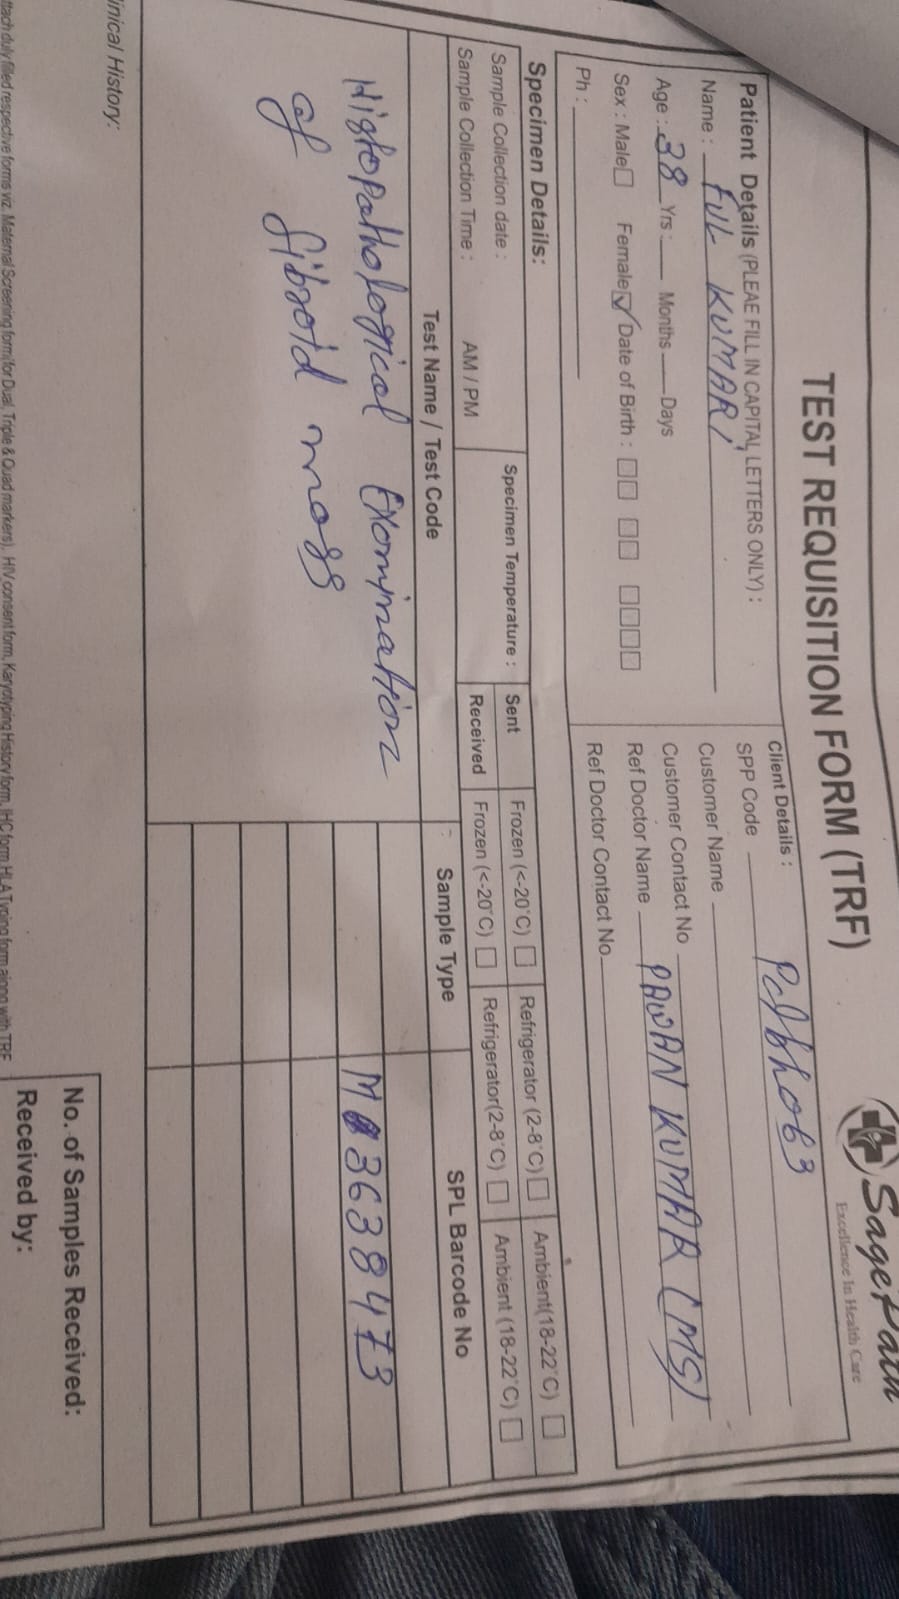 SagePath
Excellence In Health Care
TEST REQUISITION FORM (TRF)
Patient Details (PLEAE FILL IN CAPITAL LETTERS ONLY) :
Name : FUL KUMARI
Age : 38 Yrs : Months Days
Sex : Male Female Date of Birth :
Ph :
Client Details :
SPP Code
Customer Name
Customer Contact No
Ref Doctor Name PAWAN KUMAR (MS)
Ref Doctor Contact No
Specimen Details:
Sample Collection date :
Sample Collection Time : AM / PM
Specimen Temperature :
Sent Frozen (<-20°C) Refrigerator (2-8°C) Ambient(18-22°C)
Received Frozen (<-20°C) Refrigerator(2-8°C) Ambient (18-22°C)
Test Name / Test Code Sample Type SPL Barcode No
Histopathological Examination
of fibroid mass
3638473
inical History:
No. of Samples Received:
Received by:
ttach duly filled respective forms viz. Maternal Screening form(for Dual, Triple & Quad markers), HIV consent form, Karyotyping History form, IHC form, HLA Typing form along with TRF